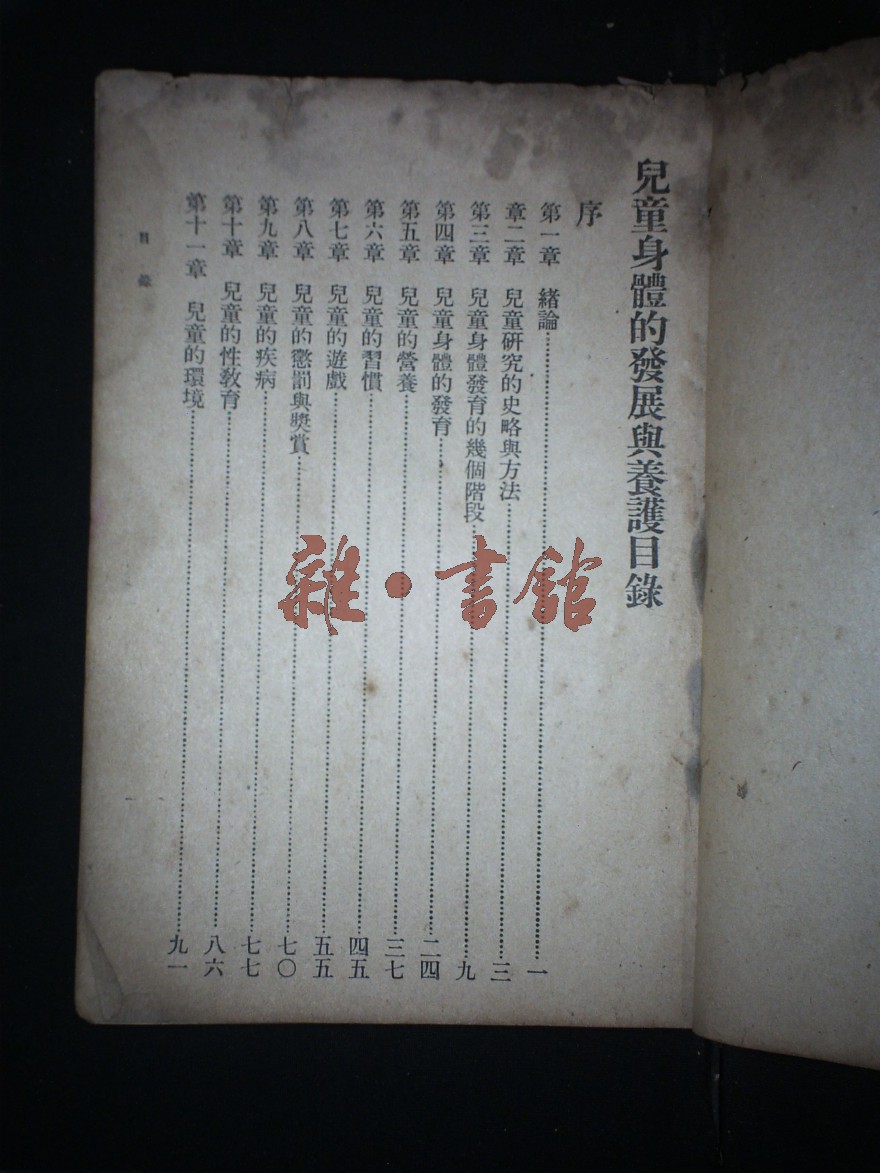 兒童身體的發展與養護目錄
序
第一章 緒論……一
章二章 兒童研究的史略與方法……三
第三章 兒童身體發育的幾個階段……九
第四章 兒童身體的發育……二四
第五章 兒童的營養……三七
第六章 兒童的習慣……四五
第七章 兒童的遊戲……五五
第八章 兒童的懲罰與獎賞……七〇
第九章 兒童的疾病……七七
第十章 兒童的性教育……八六
第十一章 兒童的環境……九一
目錄
雜·書館